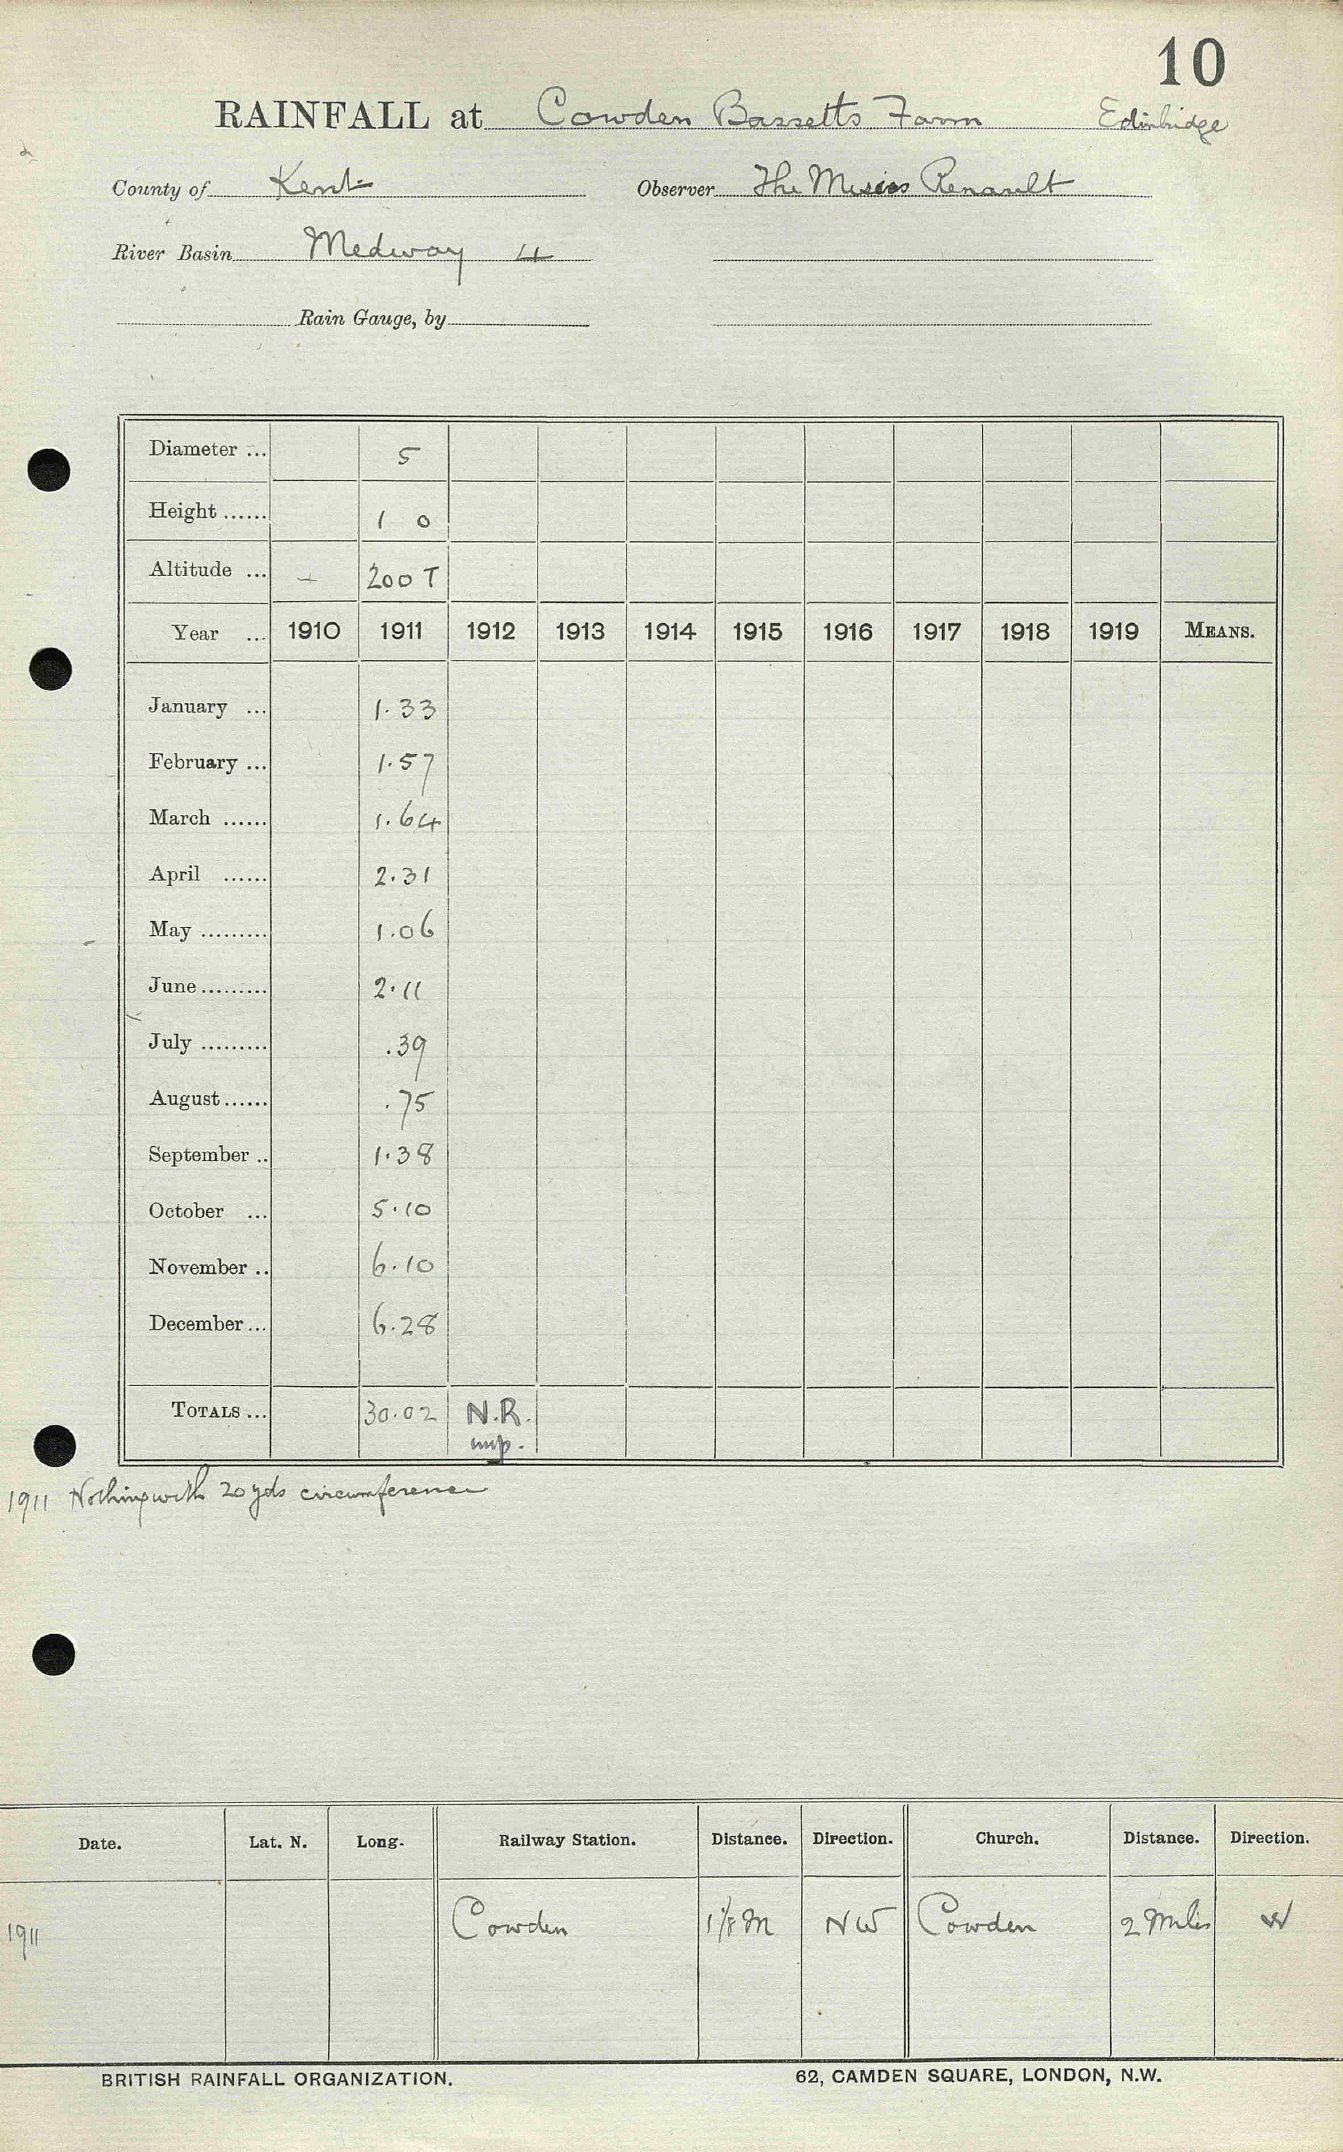 10
RAINFALL at Cowden Bassetts Farm Edinbridge
County of Kent Observer The Misses Renault
River Basin Medway 4
Rain Gauge, by
Diameter ... 5
Height ...... 1 0
Altitude ... + 200 T
Year ... 1910 1911 1912 1913 1914 1915 1916 1917 1918 1919 MEANS.
January ... 1.33
February ... 1.57
March ...... 1.64
April ...... 2.31
May ......... 1.06
June ......... 2.11
July ......... .39
August ...... .75
September .. 1.38
October ... 5.10
November .. 6.10
December ... 6.28
TOTALS ... 30.02 N.R.
imp.
1911 Nothing with 20 yds circumference
Date. Lat. N. Long. Railway Station. Distance. Direction. Church. Distance. Direction.
1911 Cowden 1 1/8 M NW Cowden 2 Miles W
BRITISH RAINFALL ORGANIZATION. 62, CAMDEN SQUARE, LONDON, N.W.